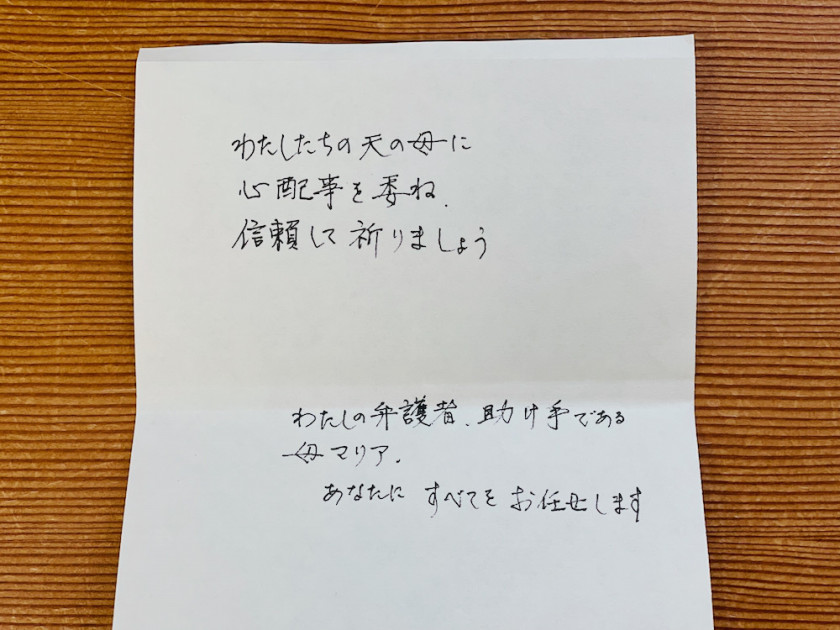 わたしたちの天の母に
心配事を委ね、
信頼して祈りましょう
わたしの弁護者、助け手である
母マリア、
あなたに すべてを お任せします